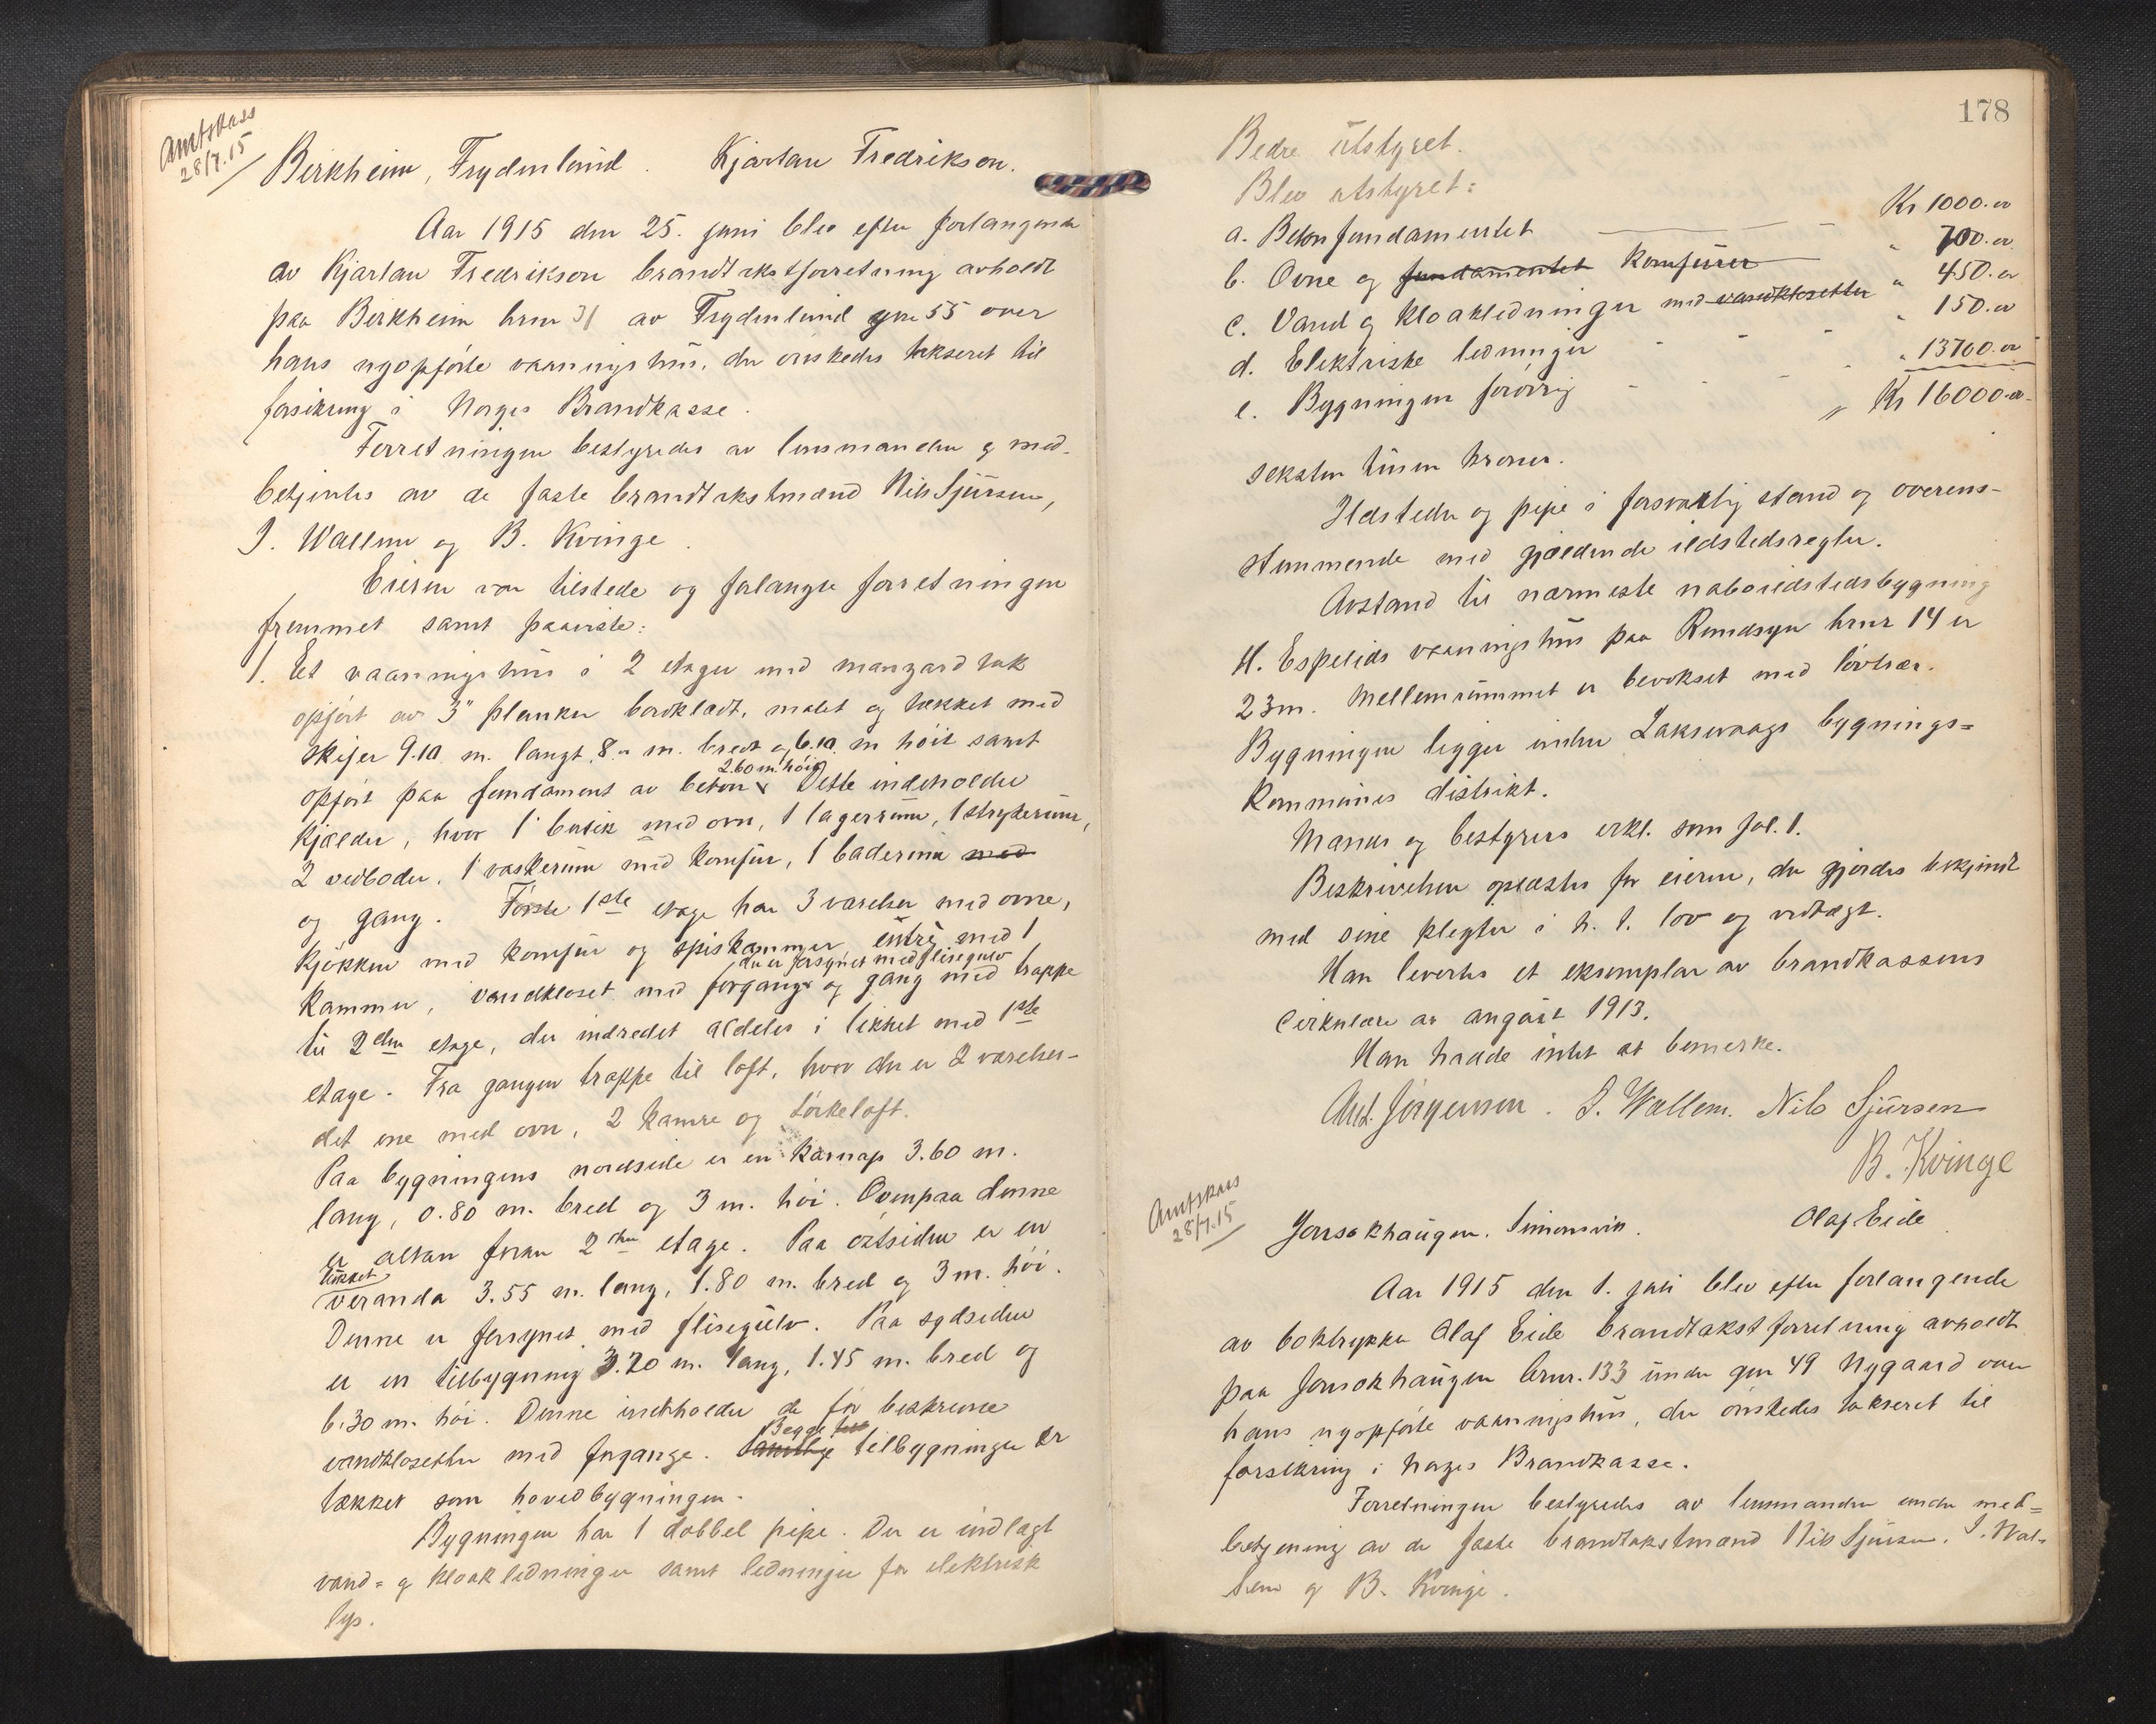 Amtskass
28/7.15
Birkheim, Frydenlund. Kjartan Fredriksen.
Aar 1915 den 25. juni blev efter forlangende
av Kjartan Fredriksen brandtakstforretning avholdt
paa Birkheim brnr 31 av Frydenlund gnr 55 over
hans nyopførte vaaningshus, der ønskedes takseret til
forsikring i Norges Brandkasse.
Forretningen bestyredes av lensmanden og med-
betjentes av de faste brandtakstmænd Nils Sjursen,
I. Wallem og B. Kvinge.
Eieren var tilstede og forlangte forretningen
fremmet samt paaviste:
1. Et vaaningshus i 2 etager med manzardtak
opført av 3" planker bordklædt, malet og tækket med
skifer 9.10 m. langt, 8.- m. bredt og 6.10 m høit samt
opført paa fundament av beton 2.60 m. høit. Dette indeholder
kjælder, hvor 1 butik med ovn, 1 lagerrum, 1 strykerum,
2 vedboder, 1 vaskerum med komfur, 1 baderum med
og gang. Første 1ste etage har 3 værelser med ovne,
kjøkken med komfur og spiskammer, entré med 1
kammer, vandkloset med forgang der er forsynet med flisegulv og gang med trappe
til 2den etage, der indredet aldeles i likhet med 1ste
etage. Fra gangen trappe til loft, hvor der er 2 værelser-
det ene med ovn, 2 kamre og tørkeloft.
Paa bygningens nordside er en karnap 3.60 m.
lang, 0.80 m. bred og 3 m. høi. Ovenpaa denne
er altan foran 2den etage. Paa østsiden er en
lukket veranda 3.55 m. lang, 1.80 m. bred og 3 m. høi.
Denne er forsynet med flisegulv. Paa sydsiden
er en tilbygning 3.20 m. lang, 1.45 m. bred og
6.30 m. høi. Denne indeholder de før beskrevne
vandklosetter med forgange. Samtlige Begge til tilbygninger er
tækket som hovedbygningen.
Bygningen har 1 dobbel pipe. Der er indlagt
vand- og kloakledninger samt ledninger for elektrisk
lys.
178
Bedre utstyret.
Blev utstyret:
a. Betonfundamentet Kr 1000.00
b. Ovne og fundamentet komfurer " 700.00
c. Vand og kloakledninger med vandklosetter " 450.00
d. Elektriske ledninger " 150.00
e. Bygningen forøvrig " 13700.00
Kr 16000.00
seksten tusen kroner.
Ildsteder og pipe i forsvarlig stand og overens-
stemmende med gjældende ildstedsregler.
Avstand til nærmeste naboildstedsbygning
H. Espelids vaaningshus paa Rundsyn brnr 14 er
23 m. Mellemrummet er bevokset med løvtrær.
Bygningen ligger under Laksevaags bygnings-
kommunes distrikt.
Mænds og bestyrers erkl. som fol. 1.
Beskrivelsen oplæstes for eieren, der gjordes bekjendt
med sine plegter i h. t. lov og vedtægt.
Han levertes et eksemplar av brandkassens
cirkulære av august 1913.
Han hadde intet at bemerke.
Ant. Jørgensen. I. Wallem. Nils Sjursen
B. Kvinge
Amtskass
28/7.15
Jonsokhaugen. Simonsvik. Olaf Eide
Aar 1915 den 1. juli blev efter forlangende
av boktrykker Olaf Eide brandtakstforretning avholdt
paa Jonsokhaugen brnr. 133 under gnr 49 Nygaard over
hans nyopførte vaaningshus, der ønskedes takseret til
forsikring i Norges Brandkasse.
Forretningen bestyredes av lensmanden under med-
betjening av de faste brandtakstmænd Nils Sjursen, I. Wal-
lem og B. Kvinge.